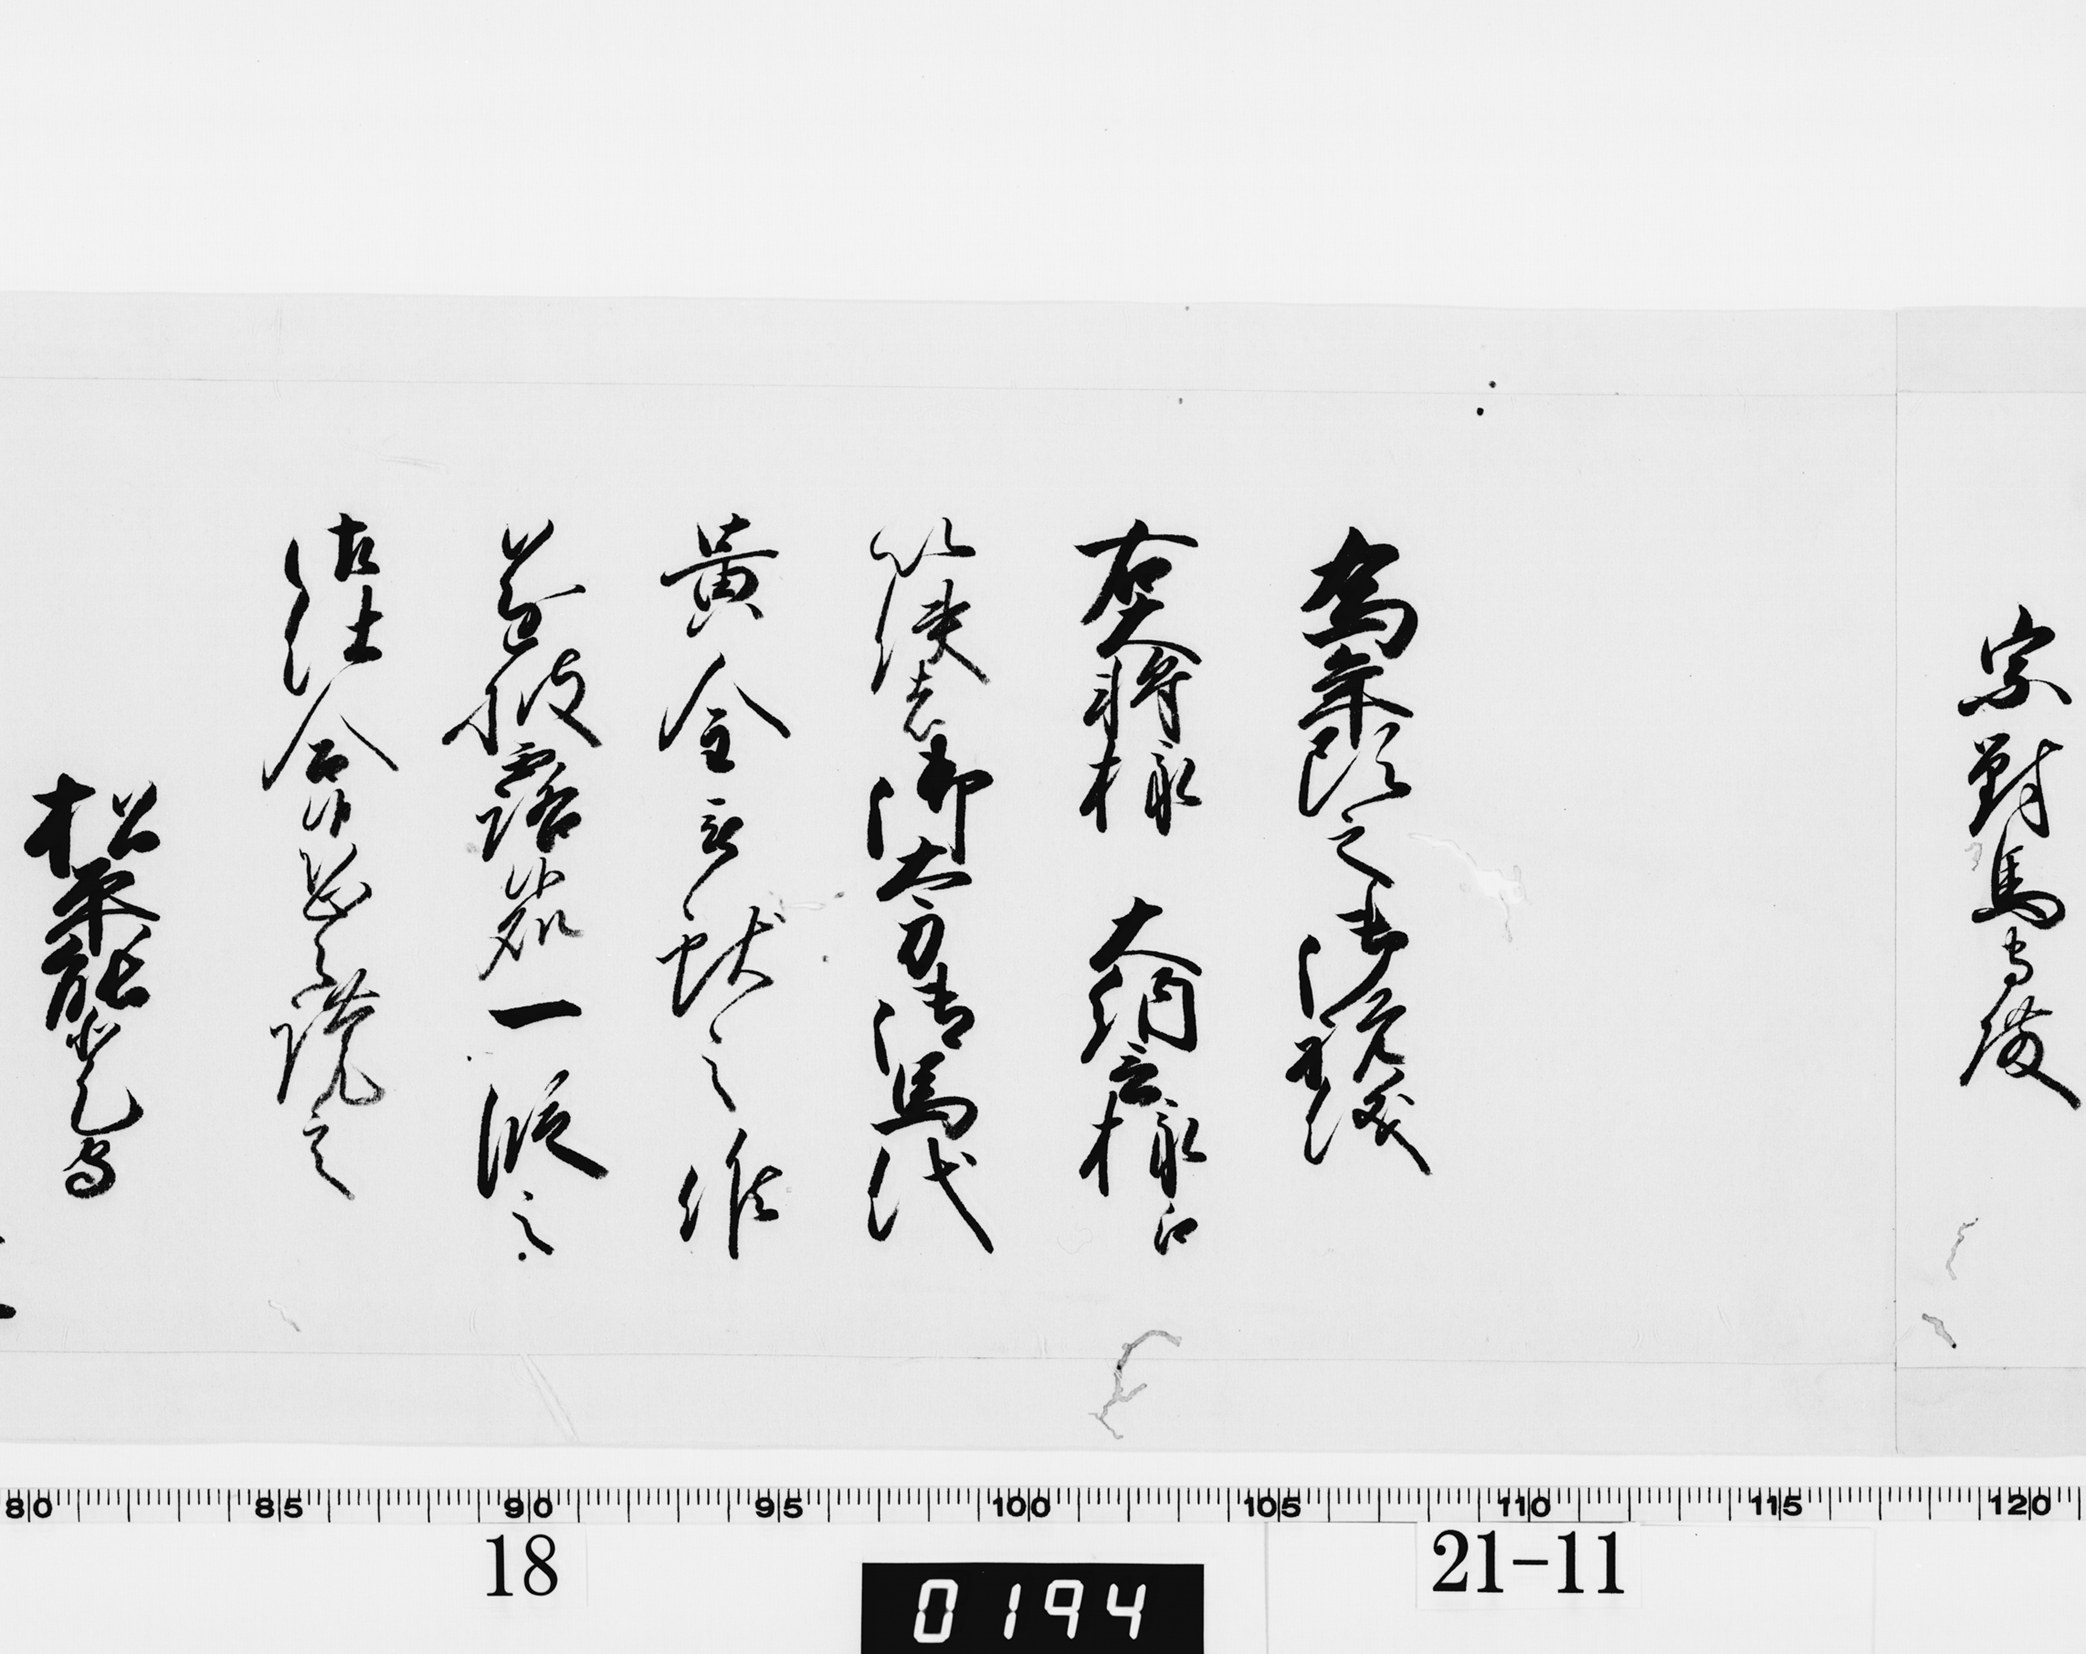 宗對馬守殿
為年頭之御祝儀
右大将様 大納言様江
以使者御太刀御馬代
黄金被献之候
遂披露處一段之
御仕合候恐々謹言
松平能登守
80 85 90 95 100 105 110 115 120
18
0194
21-11